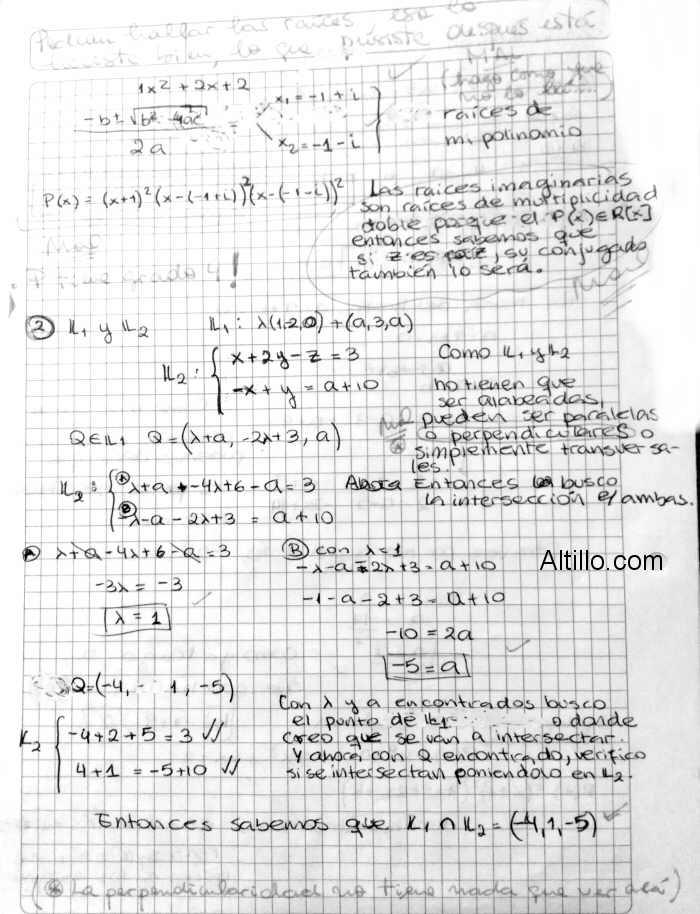 Pedían hallar las raíces, eso lo
hiciste bien, lo que pusiste después está
MAL
(hago como que
no lo leí...)
1x² + 2x + 2
-b ± √b² - 4ac
2a
x₁ = -1 + i
x₂ = -1 - i
raíces de
mi polinomio
P(x) = (x+1)² (x-(-1+i))² (x-(-1-i))²
Las raíces imaginarias
son raíces de multiplicidad
doble porque el P(x) ∈ R[x]
entonces sabemos que
si z es raíz, su conjugado
también lo será.
Mal
P tiene grado 4!
Mal
② L₁ y L₂ L₁: λ(1,-2,0) + (a,3,a)
L₂: { x + 2y - z = 3
-x + y = a + 10
Como L₁ y L₂
no tienen que
ser alabeadas,
pueden ser paralelas
o perpendiculares o
simplemente transversa-
les.
Mal
Q ∈ L₁ Q = (λ+a, -2λ+3, a)
L₂: { Ⓐ λ+a -4λ+6-a = 3
Ⓑ -λ-a-2λ+3 = a+10
Entonces busco
la intersección e/ ambas.
Ⓐ λ+a-4λ+6-a = 3
-3λ = -3
λ = 1
Ⓑ con λ = 1
-λ-a-2λ+3 = a+10
-1-a-2+3 = a+10
-10 = 2a
-5 = a
Altillo.com
Q = (-4, 1, -5)
L₂ { -4+2+5 = 3 //
4+1 = -5+10 //
Con λ y a encontrados busco
el punto de L₁ o donde
creo que se van a intersectar.
Y ahora con Q encontrado, verifico
si se intersectan poniendolo en L₂.
Entonces sabemos que L₁ ∩ L₂ = (-4,1,-5)
(⊛ La perpendicularidad no tiene nada que ver acá)